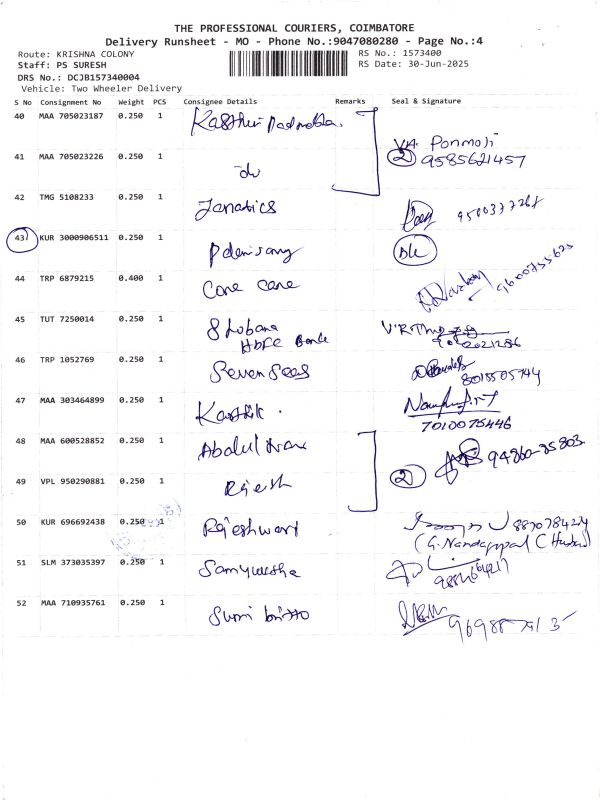 THE PROFESSIONAL COURIERS, COIMBATORE
Delivery Runsheet - MO - Phone No.:9047080280 - Page No.:4
Route: KRISHNA COLONY
RS No.: 1573400
Staff: PS SURESH
RS Date: 30-Jun-2025
DRS No.: DCJB157340004
Vehicle: Two Wheeler Delivery
S No Consignment No Weight PCS Consignee Details Remarks Seal & Signature
40 MAA 705023187 0.250 1
Ponmoji
41 MAA 705023226 0.250 1 do 2 9585621457
42 TMG 5108233 0.250 1 Fanatics
43 KUR 3000906511 0.250 1
44 TRP 6879215 0.400 1 Care care 9600755620
45 TUT 7250014 0.250 1 Shobana
HDFC Bank
46 TRP 1052769 0.250 1 Seven Seas
8015505744
47 MAA 303464899 0.250 1 Karthik.
7010075446
48 MAA 600528852 0.250 1 Abdul 94860-35803
49 VPL 950290881 0.250 1 Rajesh 2
50 KUR 696692438 0.250 1 Rajeshwari 8870784214
(G. Nandagopal (Husband)
51 SLM 373035397 0.250 1 Samyuktha
52 MAA 710935761 0.250 1 Suni britto